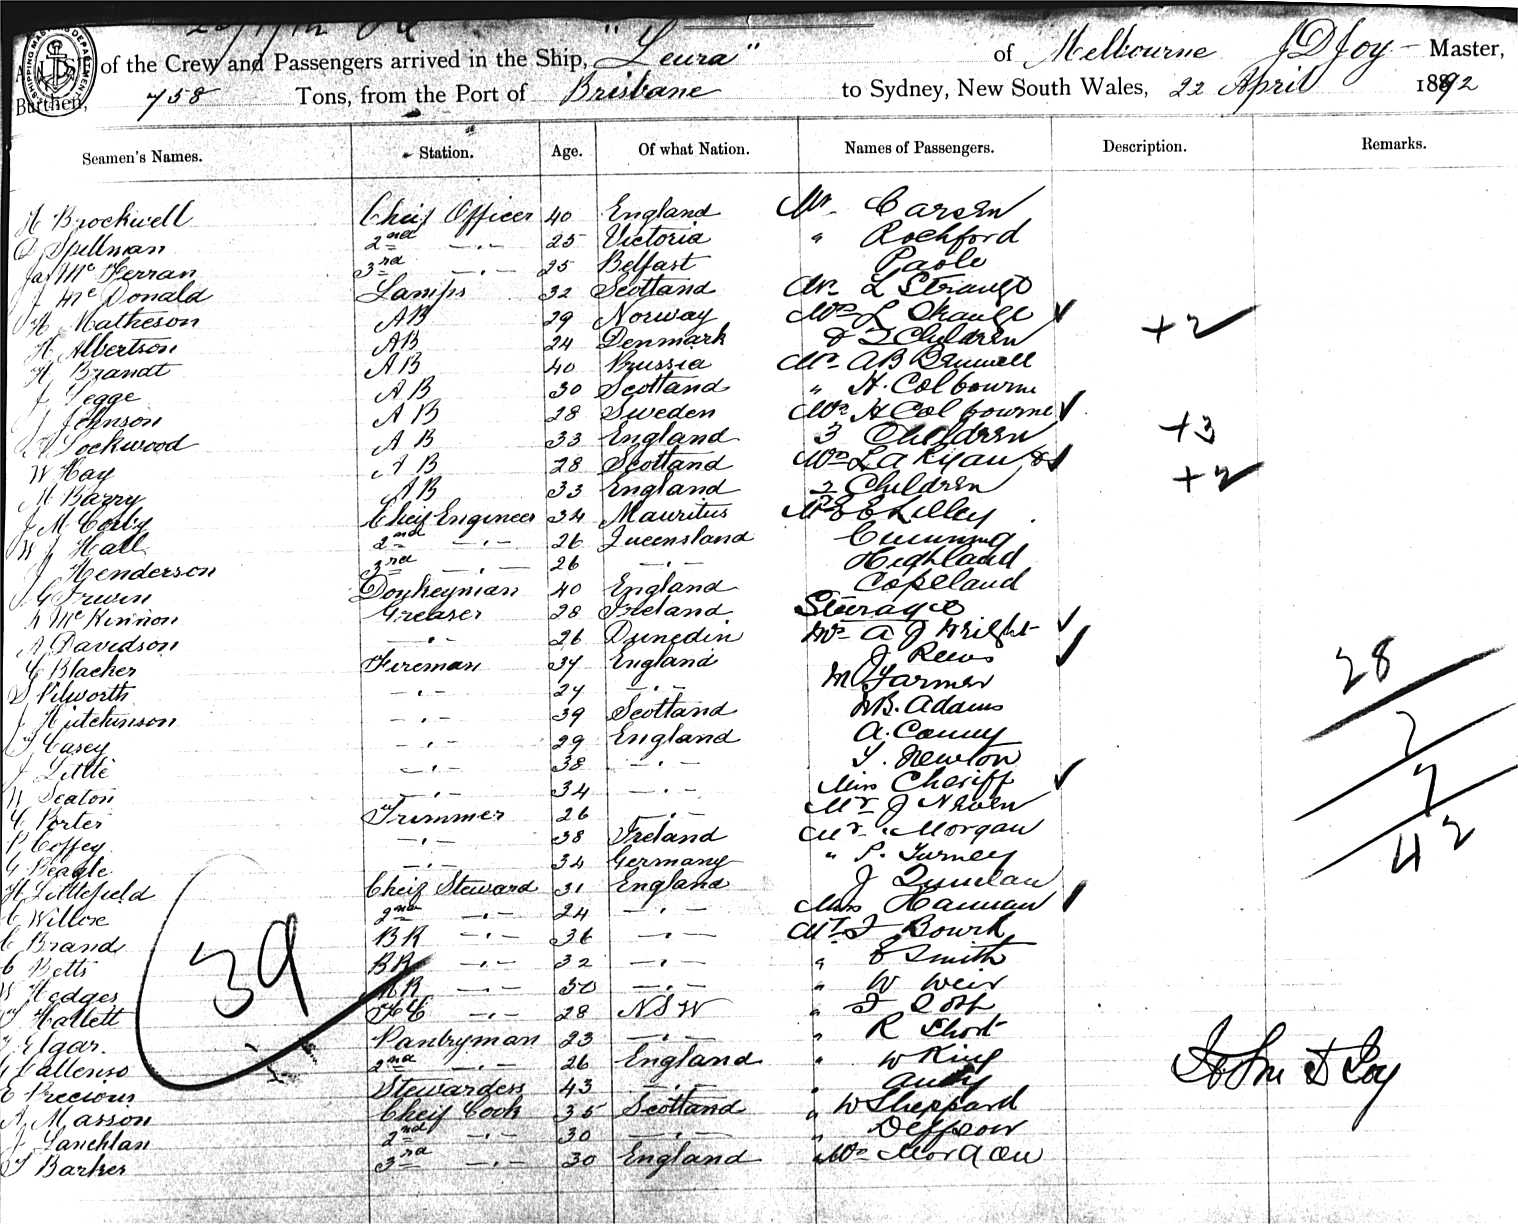 of the Crew and Passengers arrived in the Ship, "Leura" of Melbourne J D Joy - Master,
Burthen, 758 Tons, from the Port of Brisbane to Sydney, New South Wales, 22 April 1892
Seamen's Names. Station. Age. Of what Nation. Names of Passengers. Description. Remarks.
H Brockwell Cheif Officer 40 England Mr. Carsen
Spellman 2nd -"- 25 Victoria " Rochford
Jas McFerran 3rd -"- 25 Belfast Paole
J McDonald Lamps 32 Scotland Mr L Strange
A Matheson AB 29 Norway Mrs L Strange ✓
H Albertson AB 24 Denmark & 2 Children +2 ✓
H Brandt AB 40 Prussia Mr AB Brunwell
J Legge AB 30 Scotland " H. Colbourne
J Johnson AB 28 Sweden Mrs H Colbourne ✓
Lockwood AB 33 England 3 Children +3
W Hay AB 28 Scotland Mrs L A Ryan & ✓
M Barry AB 33 England 2 Children +2
J M Corby Cheif Engineer 34 Mauritus E E Lilley
W J Hall 2nd -"- 26 Queensland Cumming
J Henderson 3rd -"- 26 -"- Highland
G Irwin Donkeyman 40 England Copeland
McKinnon Greaser 28 Ireland Steerage
A Davidson -"- 26 Dunedin Mrs A J Wright ✓
C Blacker Fireman 37 England J Rees ✓
S Pilworth -"- 27 -"- M Farmer 28
J Hutchinson -"- 39 Scotland B. Adams
T Casey -"- 29 England A. Conny 7
J Little -"- 38 -"- T. Newton
W Seaton -"- 34 -"- Miss Cheriff ✓ 7
C Porter Trimmer 26 -"- Mr J Neven
P Coffey -"- 38 Ireland Mr. Morgan 42
G Beagle -"- 34 Germany " P. Turney
H Littlefield Cheif Steward 31 England J Quinlan
C Willox 2nd -"- 24 -"- Miss Hannan ✓
C Brand BR -"- 36 -"- Mr J Bourk
C Betts BR -"- 32 -"- " E Smith
W Hedges -"- 30 -"- " W Weir
T Hallett -"- 28 NSW "
Elgar Pantryman 23 -"- " R Short
2nd -"- 26 England " W King
E Precious Stewardess 43 -"- Andy
A Masson Cheif Cook 35 Scotland " W Sheppard
J Lanchlan 2nd -"- 30 -"- "
T Barker 3rd -"- 30 England " Mrs Morgan
39
John D Joy